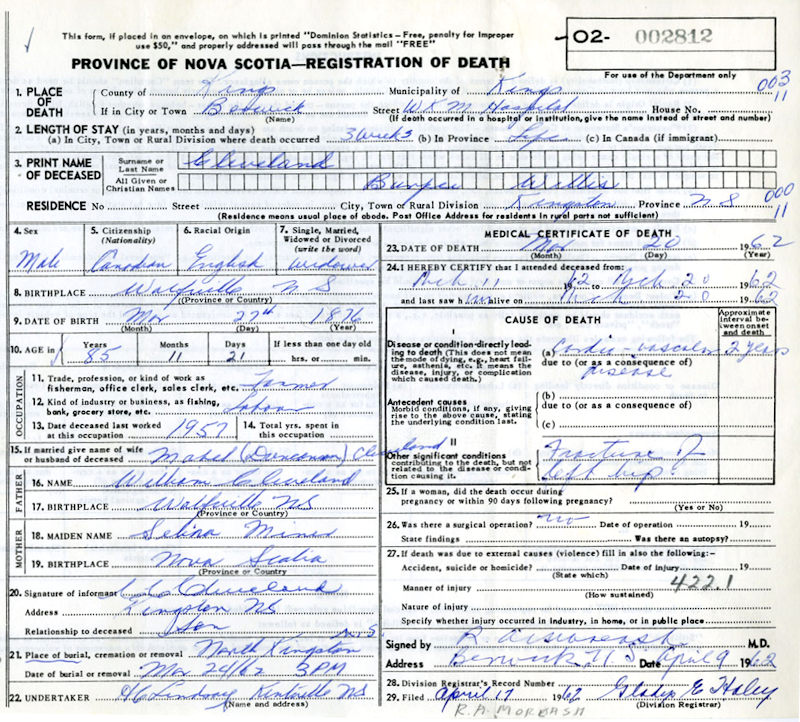 This form, if placed in an envelope, on which is printed "Dominion Statistics - Free, penalty for improper
use $50," and properly addressed will pass through the mail "FREE"
PROVINCE OF NOVA SCOTIA—REGISTRATION OF DEATH
-02- 002812
For use of the Department only
003
11
1. PLACE OF DEATH
County of Kings Municipality of Kings
If in City or Town Berwick Street W K M Hospital House No.
(Name) (If death occurred in a hospital or institution, give the name instead of street and number)
2. LENGTH OF STAY (in years, months and days)
(a) In City, Town or Rural Division where death occurred 3 weeks (b) In Province Life (c) In Canada (if immigrant)
3. PRINT NAME OF DECEASED
Surname or Last Name Cleveland
All Given or Christian Names Burpee Willis
RESIDENCE No Street City, Town or Rural Division Kingston Province N S
000
11
(Residence means usual place of abode. Post Office Address for residents in rural parts not sufficient)
4. Sex Male
5. Citizenship (Nationality) Canadian
6. Racial Origin English
7. Single, Married, Widowed or Divorced (write the word) widower
8. BIRTHPLACE Wolfville N S
(Province or Country)
9. DATE OF BIRTH Mar 27th 1876
(Month) (Day) (Year)
10. AGE in Years 85 Months 11 Days 21 If less than one day old hrs. or min.
OCCUPATION
11. Trade, profession, or kind of work as fisherman, office clerk, sales clerk, etc. Farmer
12. Kind of industry or business, as fishing, bank, grocery store, etc. Labour
13. Date deceased last worked at this occupation 1957
14. Total yrs. spent in this occupation
15. If married give name of wife or husband of deceased Mabel (Duncanson) Cleveland
FATHER
16. NAME William Cleveland
17. BIRTHPLACE Wolfville NS
(Province or Country)
MOTHER
18. MAIDEN NAME Selina Miner
19. BIRTHPLACE Nova Scotia
(Province or Country)
20. Signature of informant Cleveland
Address Kingston NS
Relationship to deceased Son
21. Place of burial, cremation or removal North Kingston N.S
Date of burial or removal Mar 24/62 3 PM
22. UNDERTAKER Lindsay Kentville NS
(Name and address)
MEDICAL CERTIFICATE OF DEATH
23. DATE OF DEATH Mar 20 1962
(Month) (Day) (Year)
24. I HEREBY CERTIFY that I attended deceased from:
Mch 11 1962 to Mch 20 1962
and last saw him alive on Mch 20 1962
CAUSE OF DEATH
Approximate interval between onset and death
I
Disease or condition directly leading to death (This does not mean the mode of dying, e.g., heart failure, asthenia, etc. It means the disease, injury, or complication which caused death.)
(a) Cardio vascular 2 years
due to (or as a consequence of)
disease
Antecedent causes
Morbid conditions, if any, giving rise to the above cause, stating the underlying condition last.
(b)
due to (or as a consequence of)
(c)
II
Other significant conditions contributing to the death, but not related to the disease or condition causing it.
Fracture of
left hip
25. If a woman, did the death occur during pregnancy or within 90 days following pregnancy?
(Yes or No)
26. Was there a surgical operation? no Date of operation 19
State findings Was there an autopsy?
27. If death was due to external causes (violence) fill in also the following:-
Accident, suicide or homicide? Date of injury 19
(State which)
Manner of injury 422.1
(How sustained)
Nature of injury
Specify whether injury occurred in industry, in home, or in public place
Signed by M.D.
Address Berwick N S Date April 9 1962
28. Division Registrar's Record Number
29. Filed April 17 1962 Gladys E Haley
(Division Registrar)